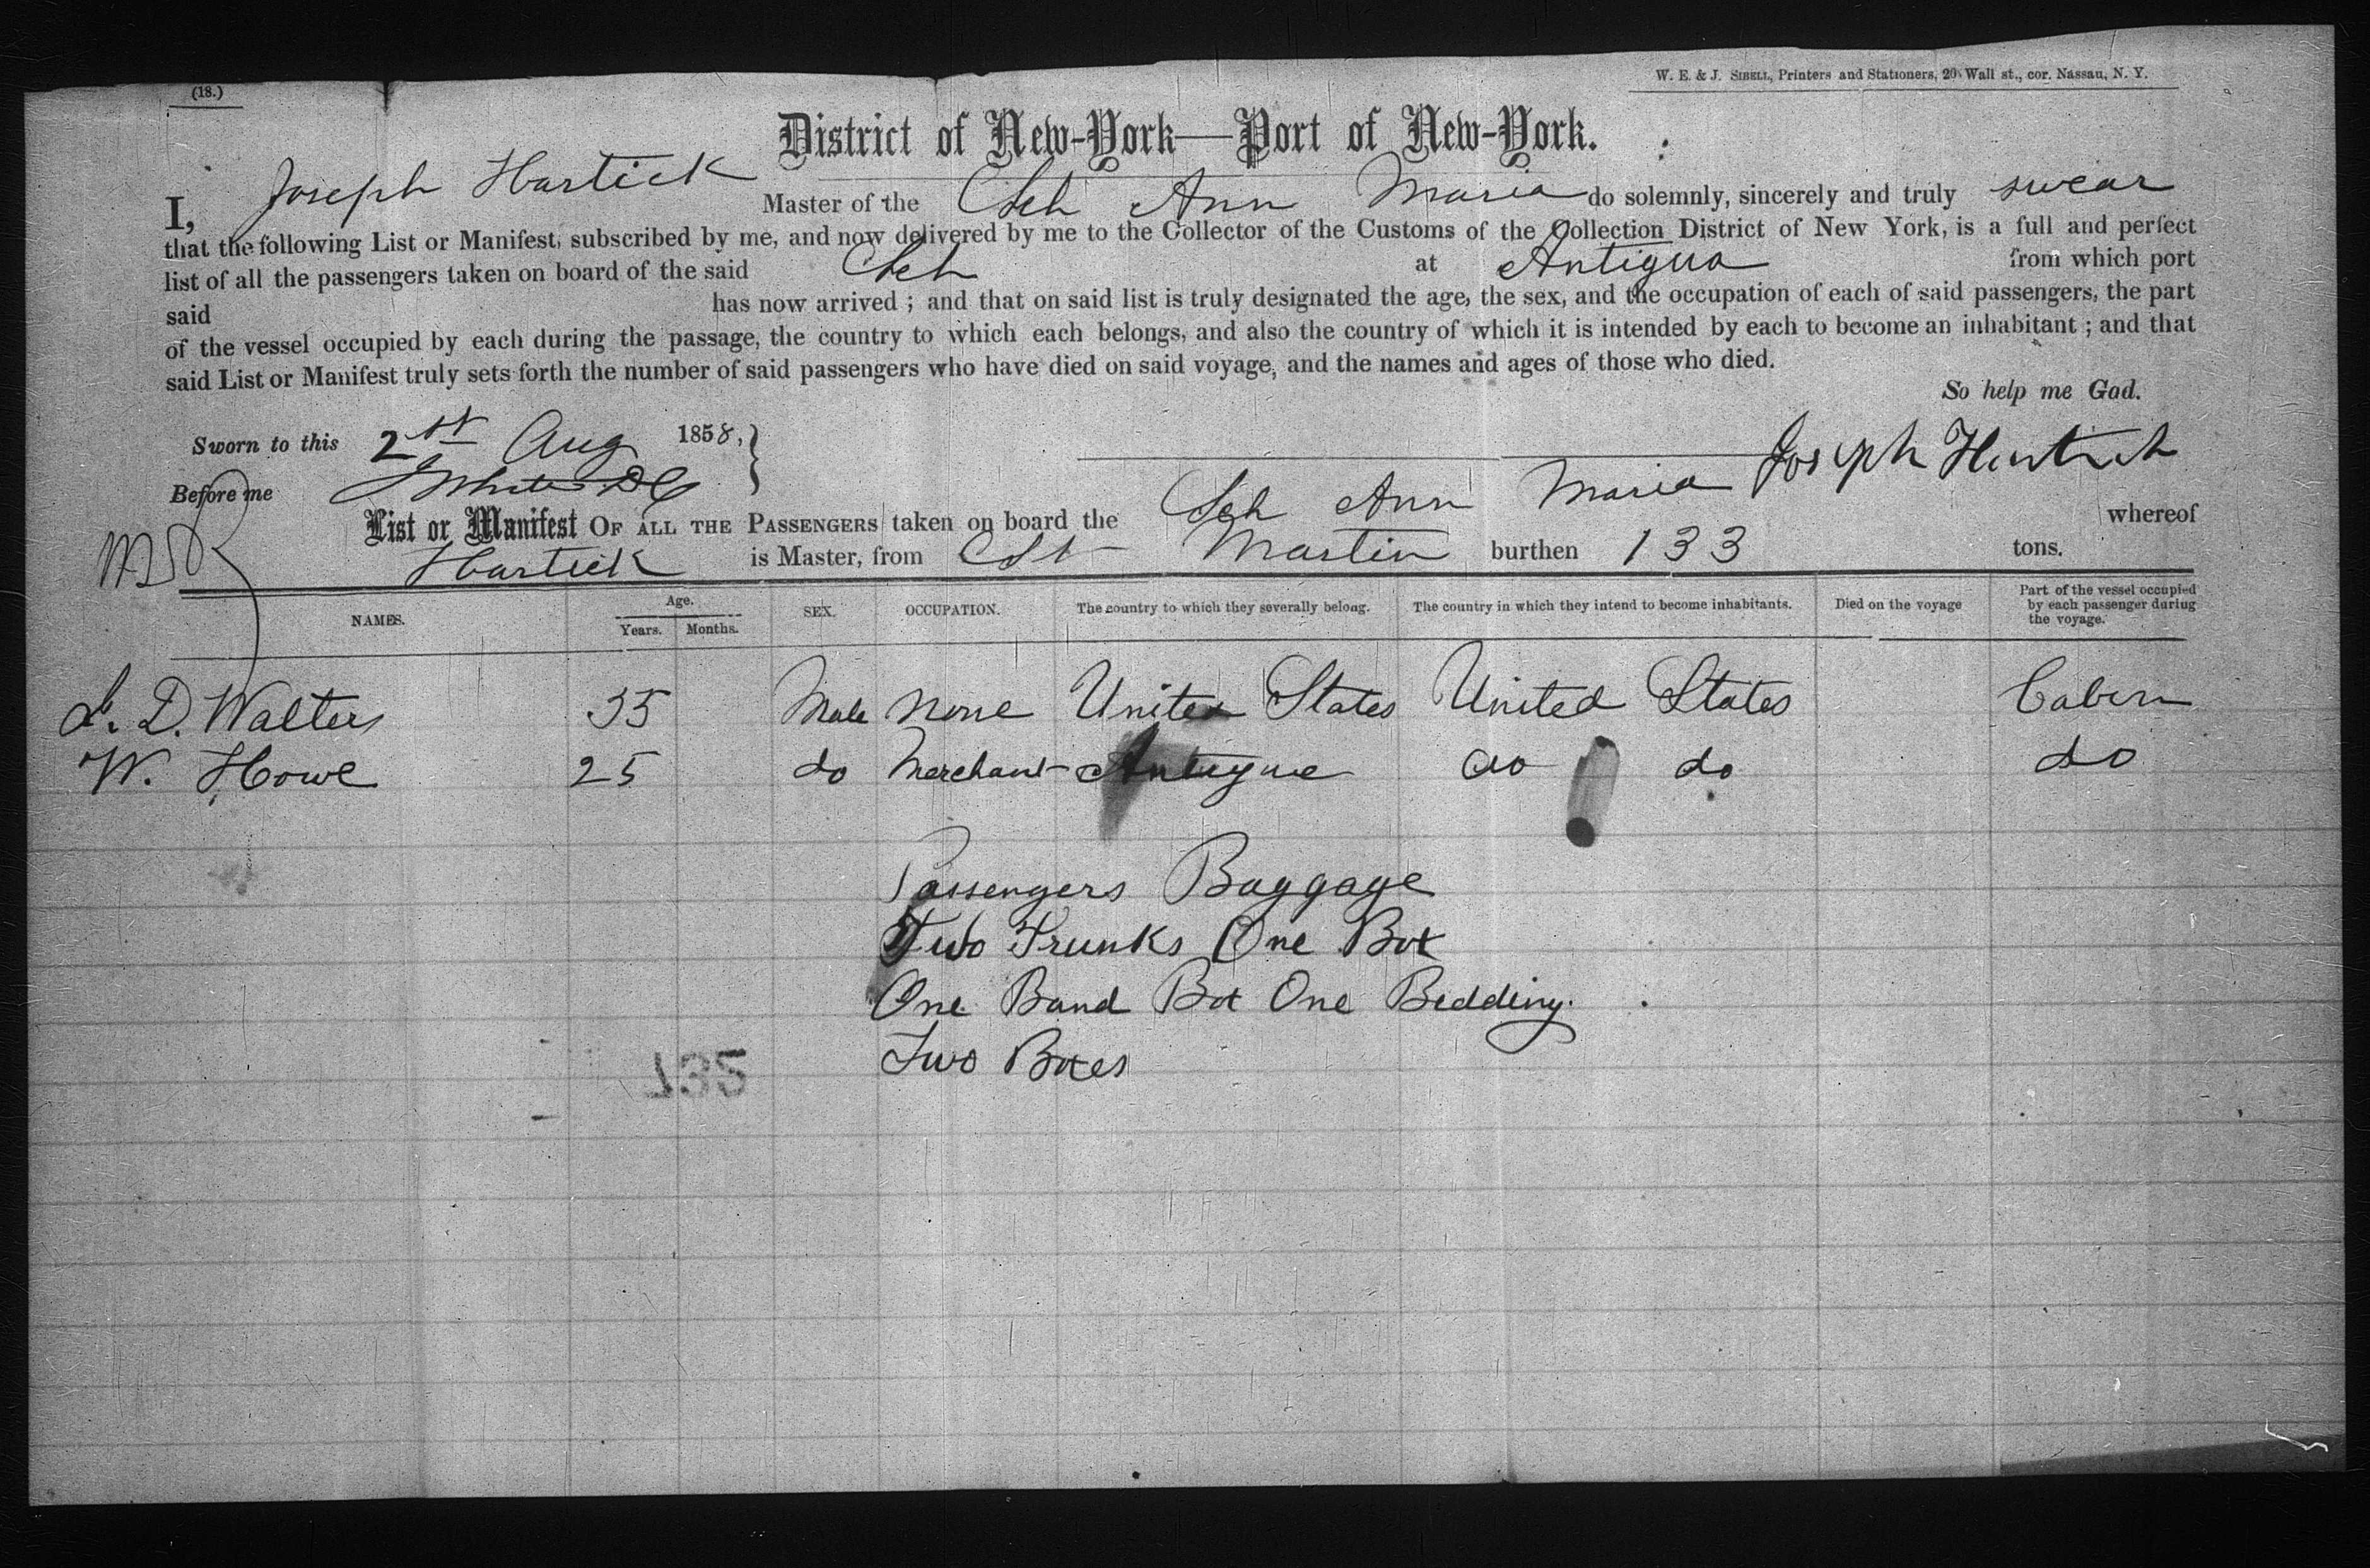 (18.)
W. E. & J. SIBELL, Printers and Stationers, 20 Wall st., cor. Nassau, N. Y.
District of New-York—Port of New-York.
I, Joseph Hartick Master of the Sch Ann Maria do solemnly, sincerely and truly swear
that the following List or Manifest, subscribed by me, and now delivered by me to the Collector of the Customs of the Collection District of New York, is a full and perfect
list of all the passengers taken on board of the said Sch at Antigua from which port
said has now arrived ; and that on said list is truly designated the age, the sex, and the occupation of each of said passengers, the part
of the vessel occupied by each during the passage, the country to which each belongs, and also the country of which it is intended by each to become an inhabitant ; and that
said List or Manifest truly sets forth the number of said passengers who have died on said voyage, and the names and ages of those who died.
So help me God.
Sworn to this 2st Aug 1858,
Joseph Hartick
Before me White DC
List or Manifest OF ALL THE PASSENGERS taken on board the Sch Ann Maria whereof
Hartick is Master, from St Martin burthen 133 tons.
NAMES. Age. Years. Months. SEX. OCCUPATION. The country to which they severally belong. The country in which they intend to become inhabitants. Died on the voyage Part of the vessel occupied by each passenger during the voyage.
L. D. Walters 35 Male None United States United States Cabin
W. Howe 25 do Merchant Antigue do do do
Passengers Baggage
Two Trunks One Box
One Band Box One Bedding.
Two Boxes